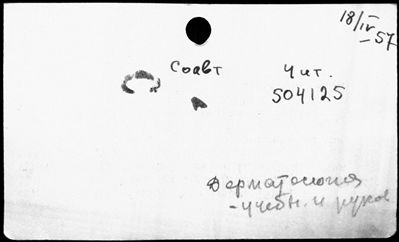 18/IV
-57
Соавт
Чит.
504125
Дерматология
-учебн. и руков